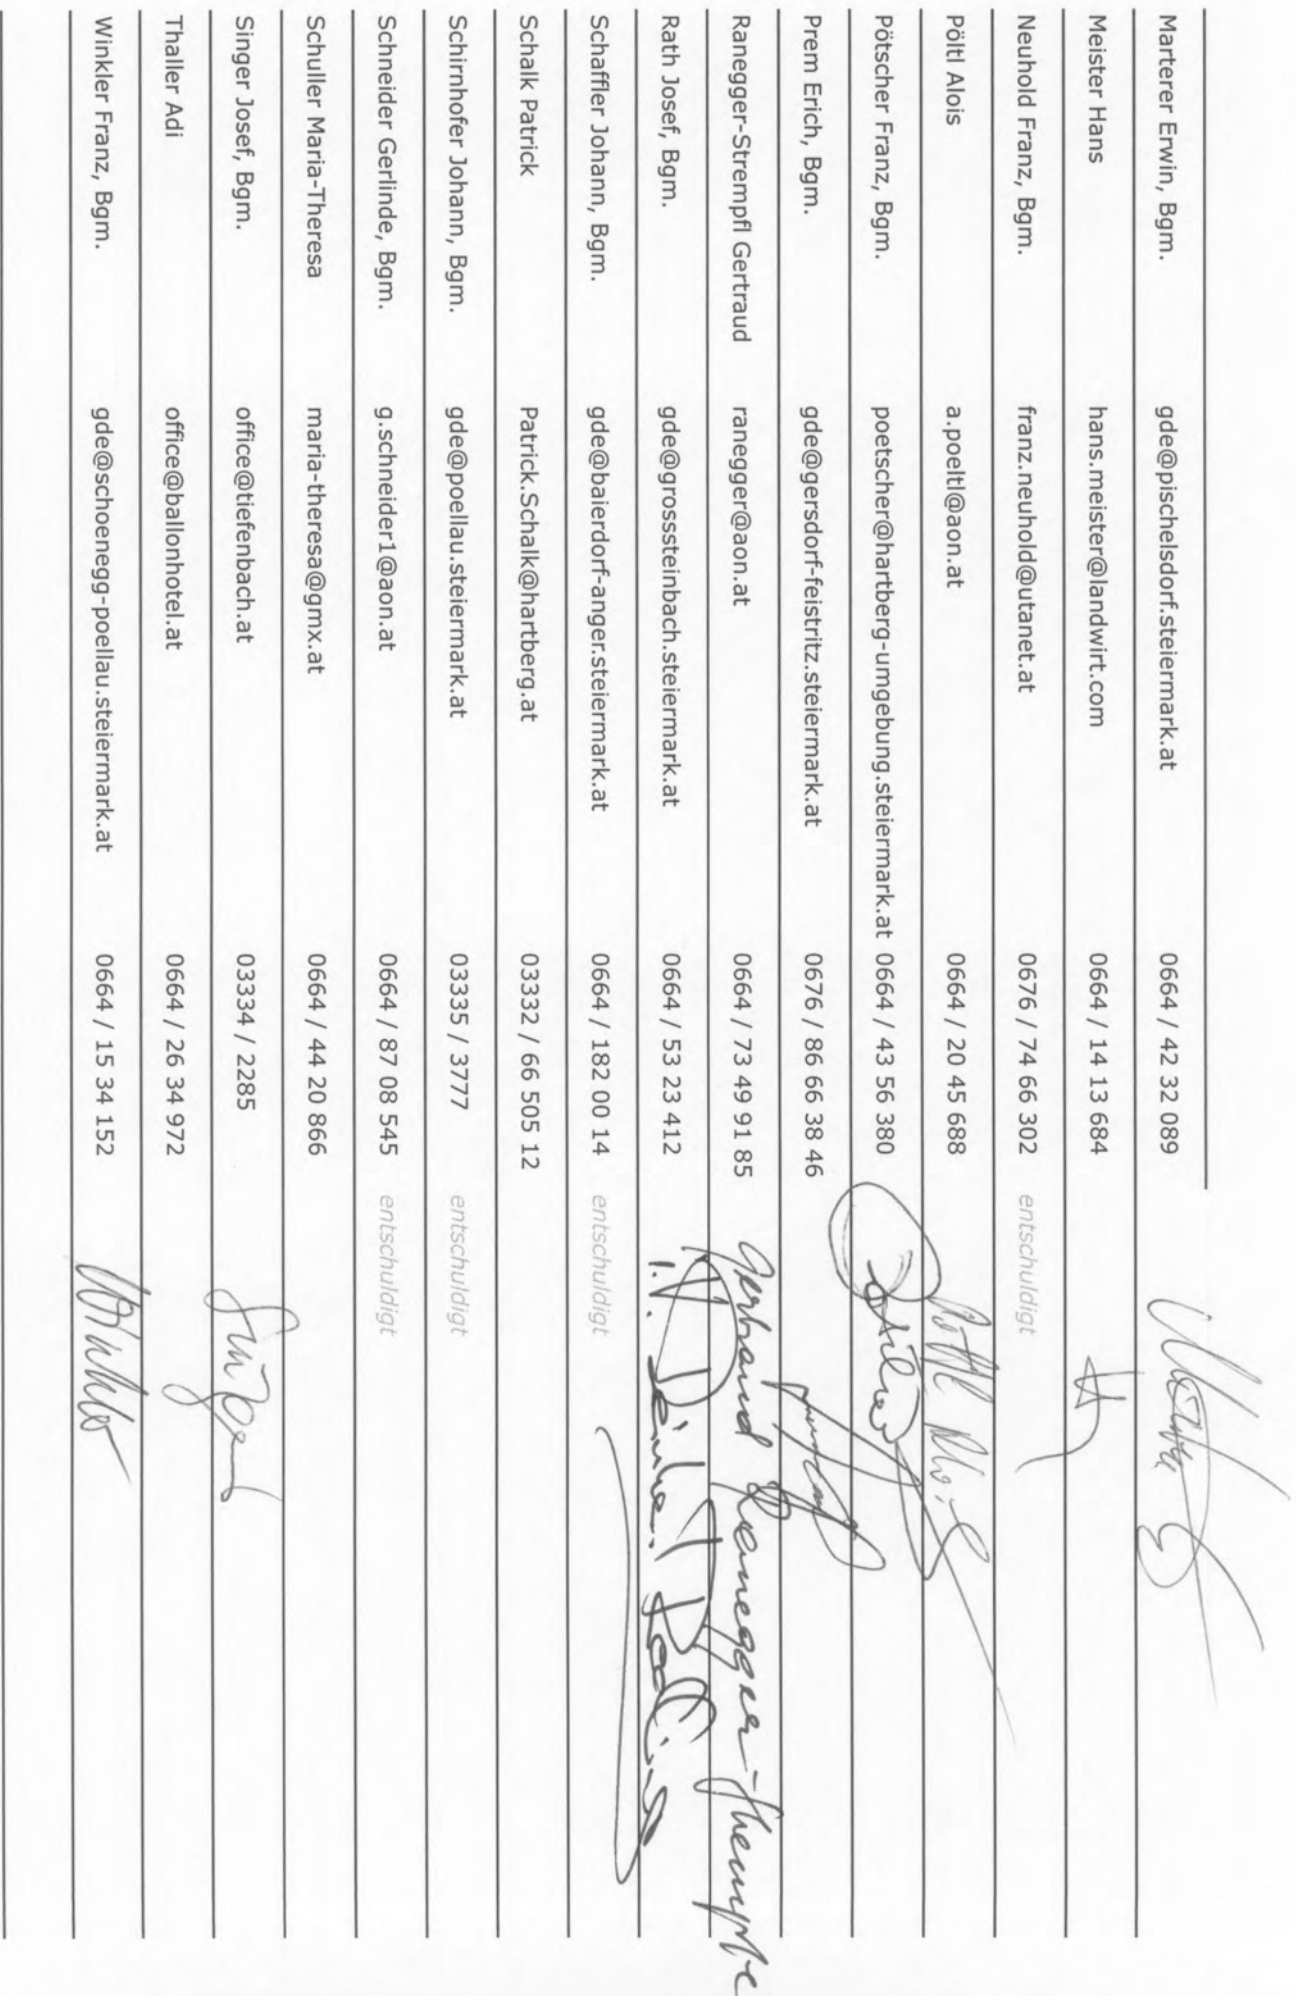 Marterer Erwin, Bgm. gde@pischelsdorf.steiermark.at 0664 / 42 32 089
Meister Hans hans.meister@landwirt.com 0664 / 14 13 684
Neuhold Franz, Bgm. franz.neuhold@utanet.at 0676 / 74 66 302 entschuldigt
Pöltl Alois a.poeltl@aon.at 0664 / 20 45 688
Pötscher Franz, Bgm. poetscher@hartberg-umgebung.steiermark.at 0664 / 43 56 380
Prem Erich, Bgm. gde@gersdorf-feistritz.steiermark.at 0676 / 86 66 38 46
Ranegger-Strempfl Gertraud ranegger@aon.at 0664 / 73 49 91 85
Rath Josef, Bgm. gde@grosssteinbach.steiermark.at 0664 / 53 23 412
Schaffler Johann, Bgm. gde@baierdorf-anger.steiermark.at 0664 / 182 00 14 entschuldigt
Schalk Patrick Patrick.Schalk@hartberg.at 03332 / 66 505 12
Schirnhofer Johann, Bgm. gde@poellau.steiermark.at 03335 / 3777 entschuldigt
Schneider Gerlinde, Bgm. g.schneider1@aon.at 0664 / 87 08 545 entschuldigt
Schuller Maria-Theresa maria-theresa@gmx.at 0664 / 44 20 866
Singer Josef, Bgm. office@tiefenbach.at 03334 / 2285
Thaller Adi office@ballonhotel.at 0664 / 26 34 972
Winkler Franz, Bgm. gde@schoenegg-poellau.steiermark.at 0664 / 15 34 152